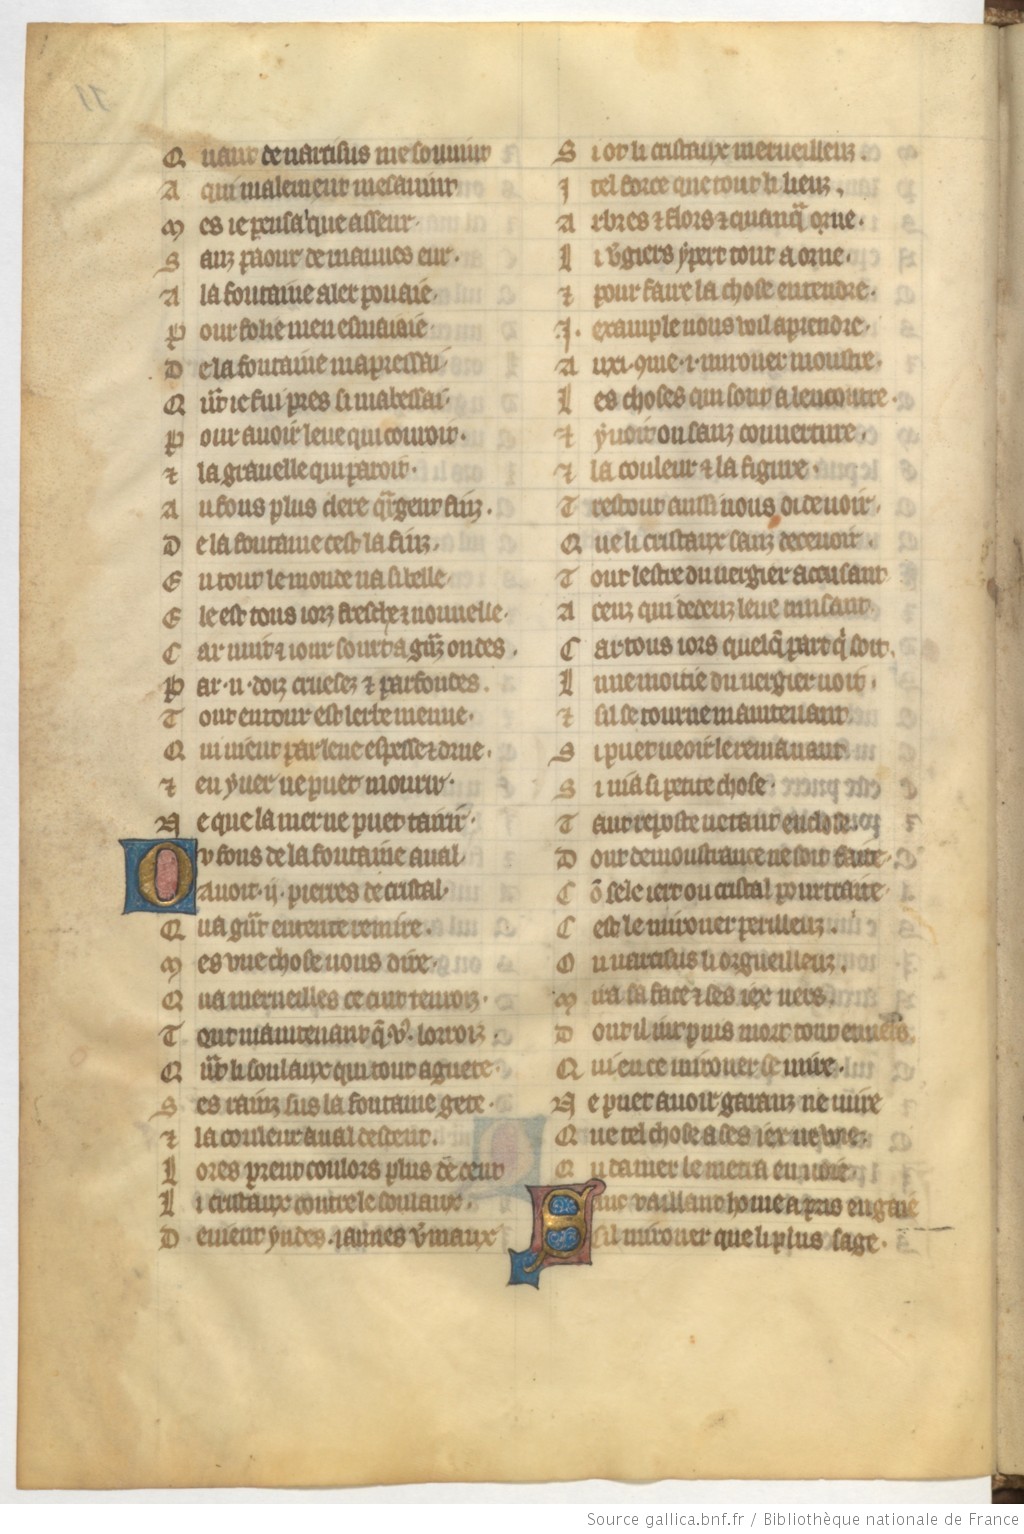 Quant de narcisus me souuint
A qui malement mesauint
Mes ie pensa que asseur
Sanz paour de mauues eur
A la fontaine aler pouaie
Pour folie men esmaiaie
De la fontaine mapressai
Qñt ie fui pres si mabessai
Pour auoir leue qui couroit
⁊ la grauelle qui paroit
Au fons plus clere qargent fins
De la fontaine cest la fins
En tout le monde na si belle
Ele est tous iorz fresche ⁊ nouuelle
Car nuit ⁊ iour sourt a gñz ondes
Par .ii. doiz creuses ⁊ parfondes
Tout entour est lerbe menue
Qui uient par leue espesse ⁊ drue
⁊ en yuer ne puet mourir
Ne que la mer ne puet tarir
Ou fons de la fontaine aual
Auoit .ii. pierres de cristal
Qua gñt entente remire
Mes vne chose uous dire
Qua merueilles ce cuit tenroiz
Tout maintenant q̃ vo lorroiz
Qñt li soulaux qui tout aguete
Ses rainz sus la fontaine gete
⁊ la couleur aual descent
Lores prent coulors plus de cent
Li cristaux contre le soulaux
Deuient yndes iaunes v̾maux
Si ot li cristaux merueilleux
Itel force que tout li lieux
Arbres ⁊ flors ⁊ quanq̃ orne
Li v̾giers y pert tout a orne
⁊ pour faire la chose entendre
.I. example uous voil aprendre
Auxi 9me .i. mirouer moustre
Les choses qui sont a lencontre
⁊ y voit on sanz couuerture
⁊ la couleur ⁊ la figure
Trestout aussi uous di de uoir
Que li cristaux sanz deceuoir
Tout lestre du uergier accusant
A ceux qui dedenz leue musant
Car tous iors quelq̃ part q̃ soit
Lune moitie du uergier uoit
⁊ sil se tourne maintenant
Si puet ueoir le remanant
Si ni a si petite chose
Tant reposte ne tant enclose
Dont demoustrance ne soit faite
Cõ se le iert ou cristal pourtraite
Cest le mirouer perilleux
Ou narcisus li orgueilleux
Mira sa face ⁊ ses iex uers
Dont il iut puis mort tout enuers
Qui en ce mirouer se mire
Ne puet auoir garanz ne mire
Que tel chose a ses iex ne voie
Qui damer le metra en uoie
Maint vaillant home a pris en gaie
Cil mirouer que li plus sage